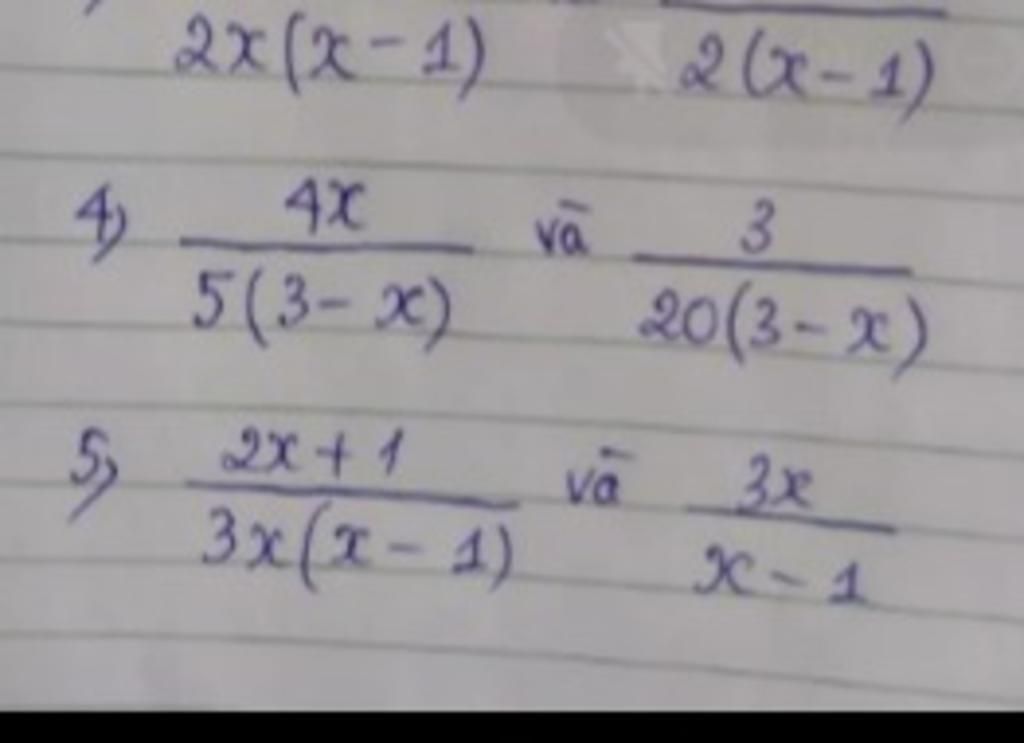 2x(x-1) 2(x-1)
4) 4x/5(3-x) và 3/20(3-x)
5) 2x+1/3x(x-1) và 3x/x-1